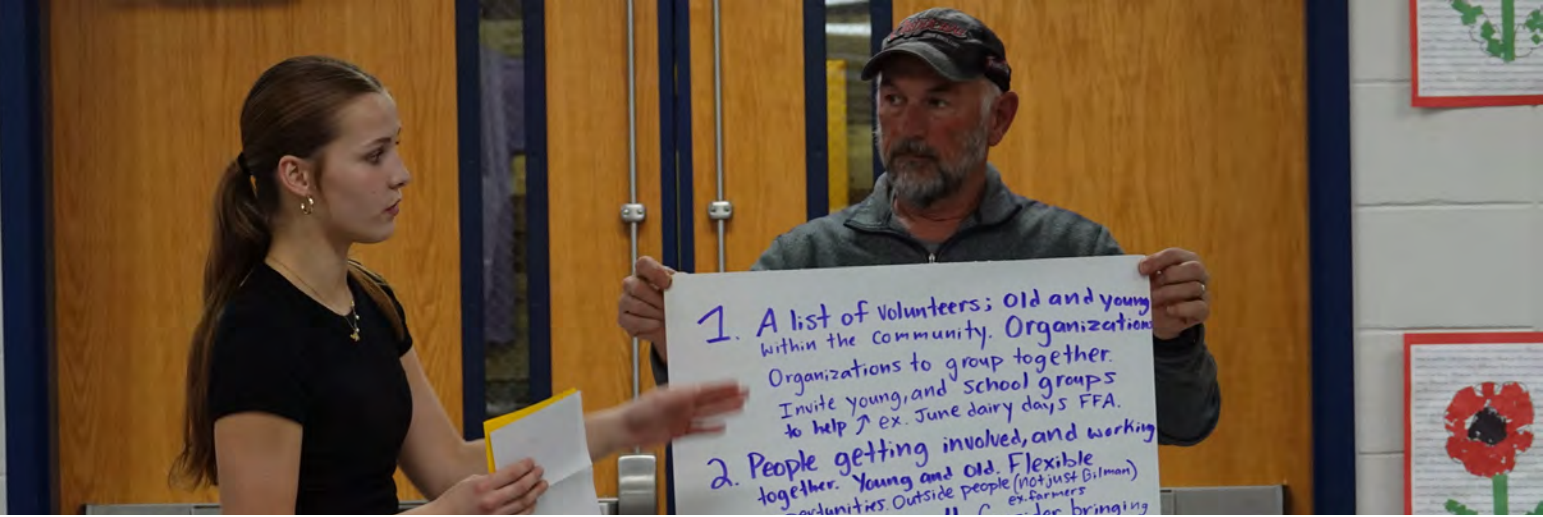 1. A list of volunteers; Old and young
within the community. Organizations
Organizations to group together.
Invite young, and school groups
to help ↗ ex. June dairy days FFA.
2. People getting involved, and working
together. Young and Old. Flexible
Outside people (not just Gilman)
ex. farmers
bringing